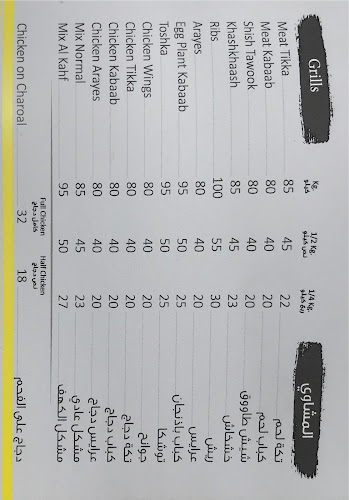 Grills المشاوي
Kg. 1/2 Kg. 1/4 Kg.
كيلو نص كيلو ربع كيلو
Meat Tikka 85 45 22 تكة لحم
Meat Kabaab 80 40 20 كباب لحم
Shish Tawook 80 40 20 شيش طاووق
Khashkhaash 85 45 23 خشخاش
Ribs 100 55 30 ريش
Arayes 80 40 20 عرايس
Egg Plant Kabaab 95 50 25 كباب باذنجان
Toshka 95 50 25 توشكا
Chicken Wings 80 40 20 جوانح
Chicken Tikka 80 40 20 تكة دجاج
Chicken Kabaab 80 40 20 كباب دجاج
Chicken Arayes 80 40 20 عرايس دجاج
Mix Normal 85 45 23 مشكل عادي
Mix Al Kahf 95 50 27 مشكل الكهف
Full Chicken Half Chicken
كامل دجاج نص دجاج
Chicken on Charoal 32 18 دجاج على الفحم